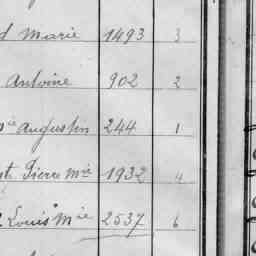 Marie 1493 3
Antoine 902 2
Augustin 244 1
Pierre Mie 1932 4
Louis Mie 2537 6